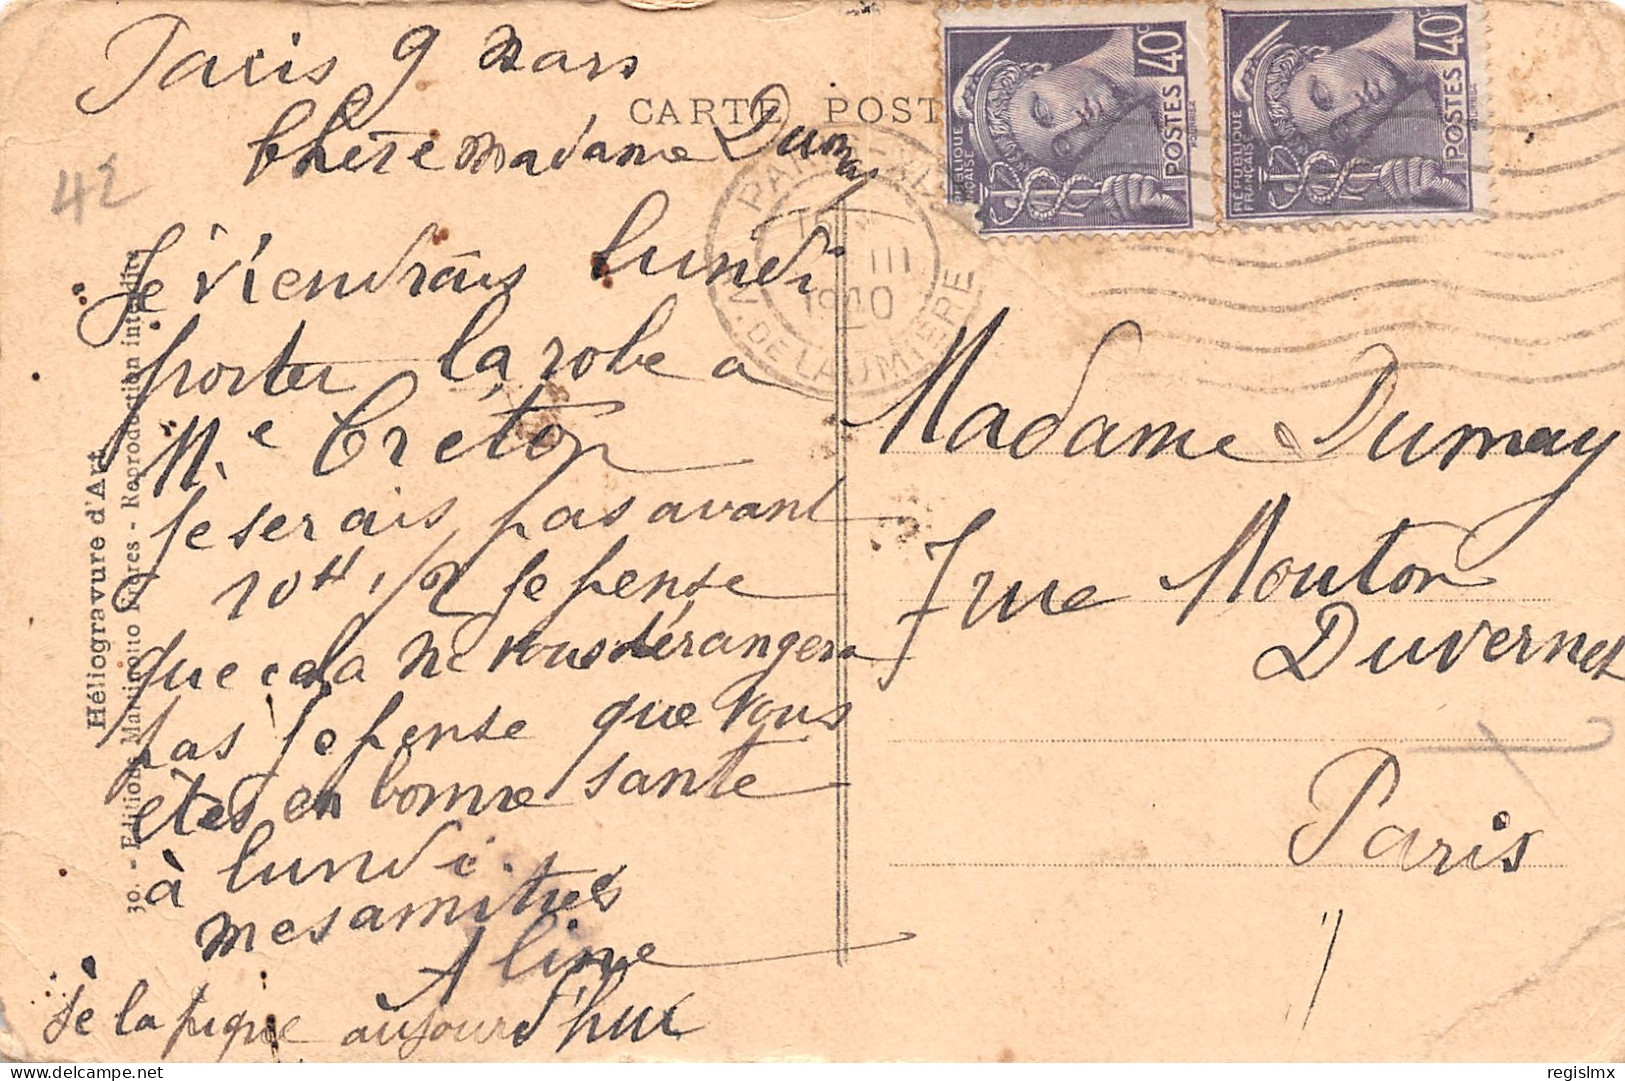 Paris 9 Mars
CARTE POST
Chère madame Dumay
42
Je viendrais lundi
porter la robe a
Me Creton
Je serais pas avant
10H 1/2 Je pense
que cela ne vous dérangera
pas Je pense que vous
êtes en bonne santé
à lundi.
mes amitiés
Aline
Je la pique aujourd'hui
Madame Dumay
7 rue Mouton
Duvernet
Paris
Héliogravure d'Art
30. - Editions Reproduction interdite
40c
POSTES
RÉPUBLIQUE
FRANÇAISE
40c
POSTES
RÉPUBLIQUE
FRANÇAISE
PARIS
III
1940
AV. DE LAUMIERE
regislmx
delcampe.net